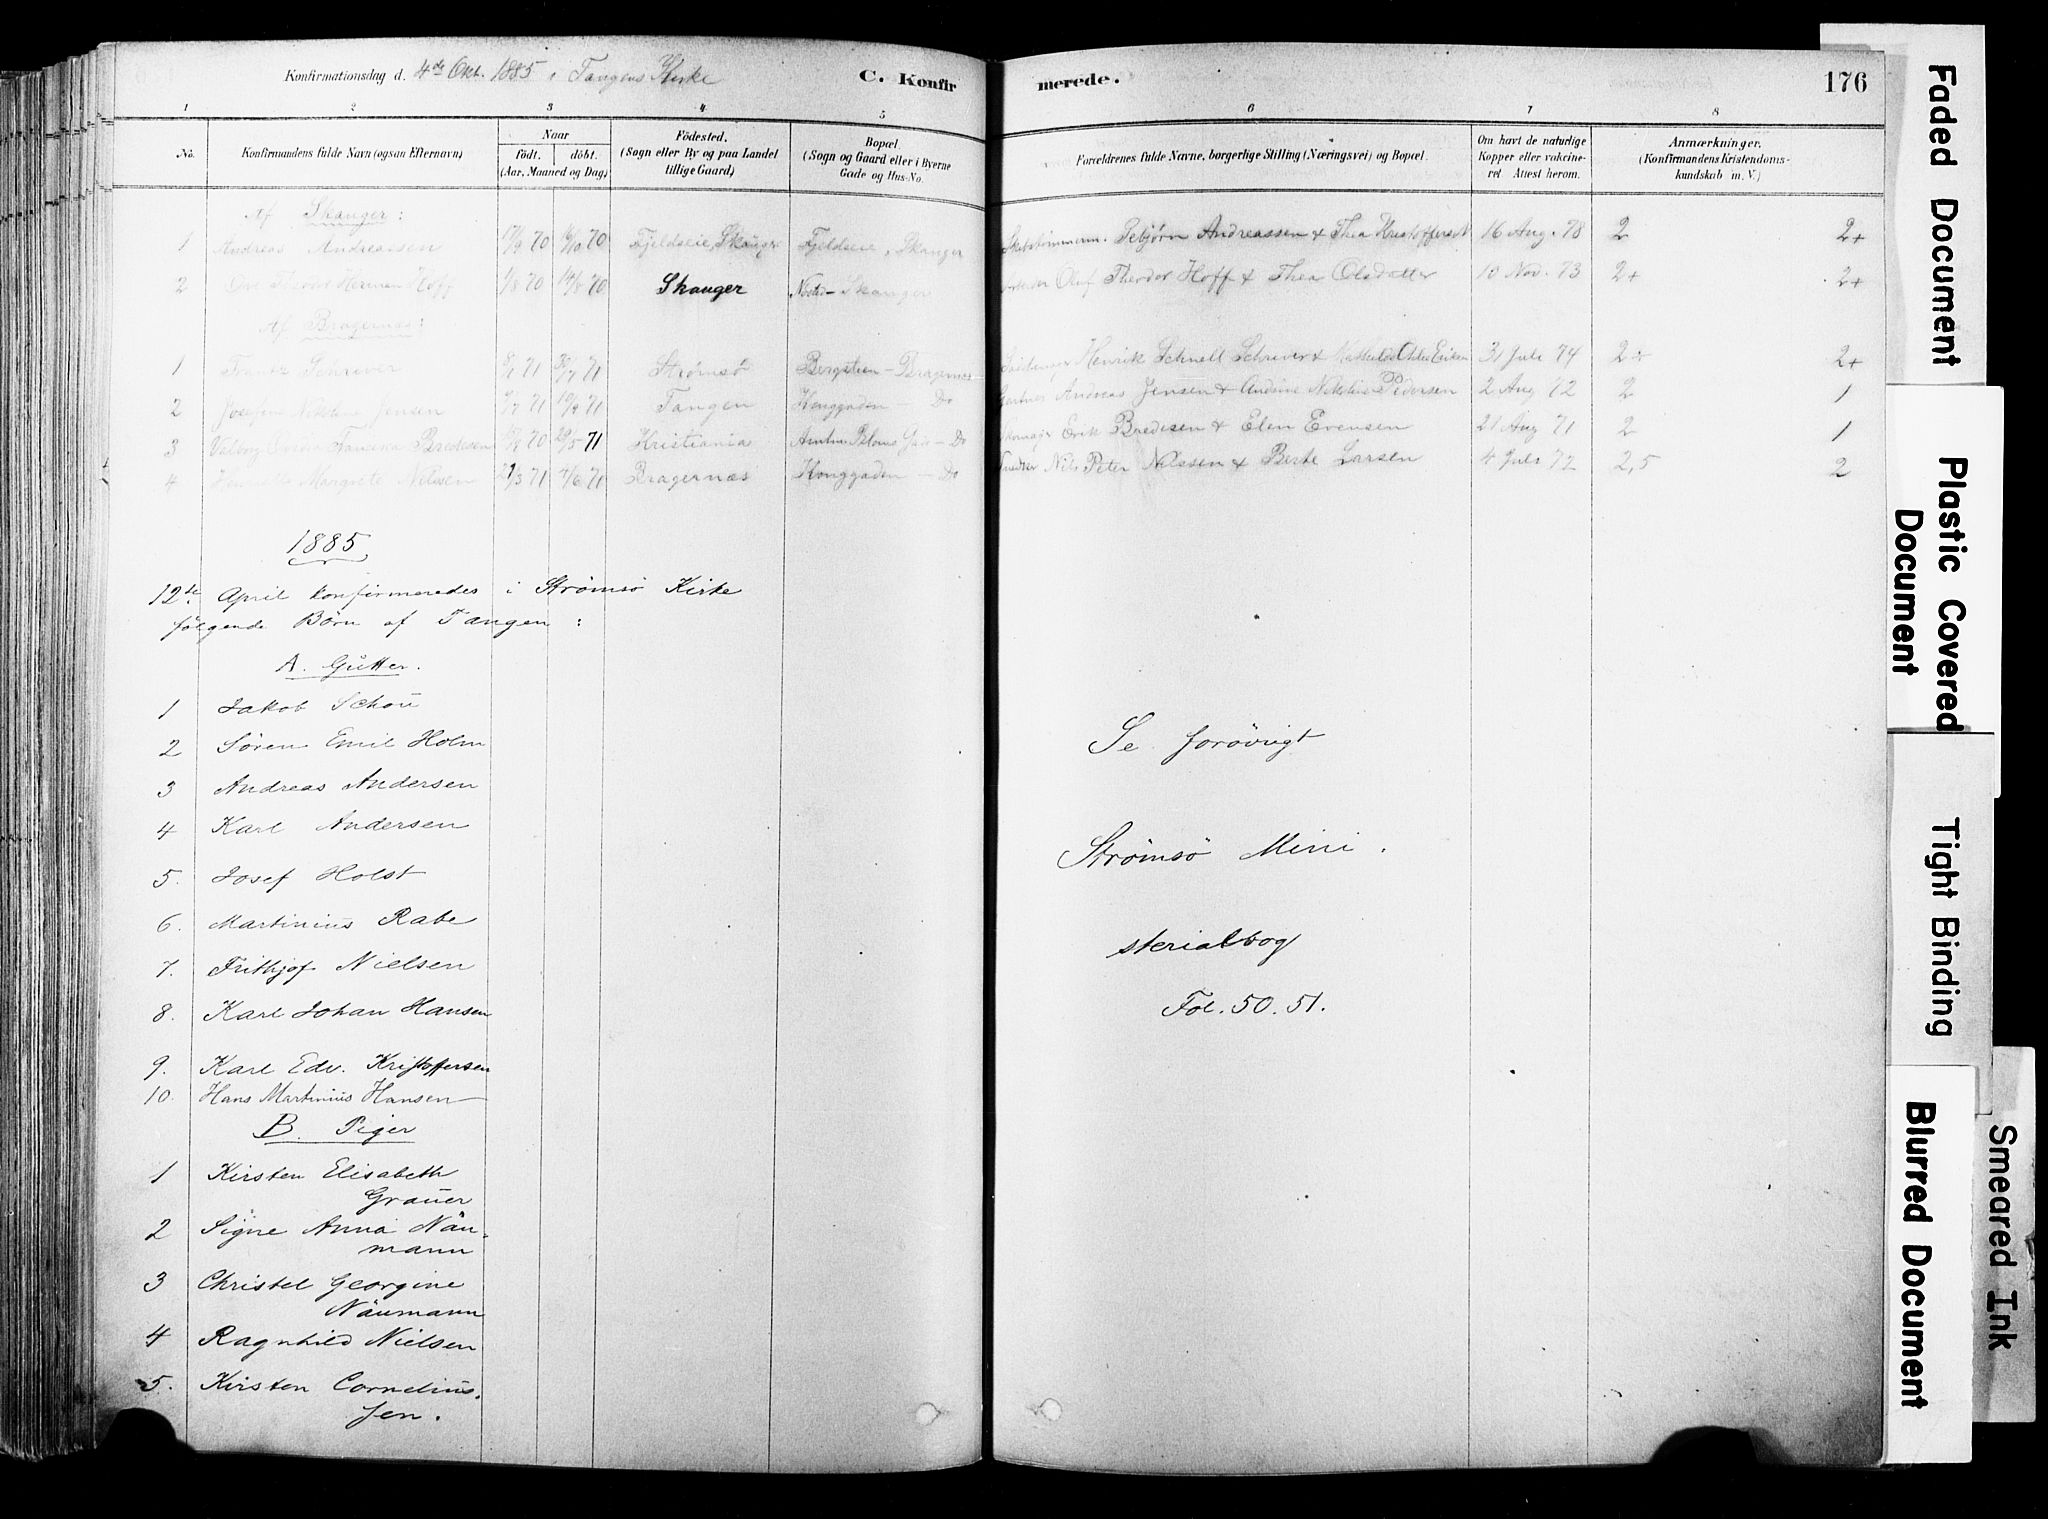 Konfirmationsdag d. 4de Okt. 1885 i Tangens Kirke
C. Konfirmerede.
176
1 2 3 4 5 6 7 8
No.
Konfirmandens fulde Navn (ogsaa Efternavn)
Naar
födt. döbt.
(Aar, Maaned og Dag)
Födested.
(Sogn eller By og paa Landet
tillige Gaard)
Bopæl.
(Sogn og Gaard eller i Byerne
Gade og Hus-No.
Forældrenes fulde Navne, borgerlige Stilling (Næringsvei) og Bopæl.
Om havt de naturlige
Kopper eller vakcine-
ret Attest herom.
Anmærkninger,
(Konfirmandens Kristendoms-
kundskab m. V.)
Af Skauger:
1 Andreas Andreassen 17/9 70 70 Fjeldseie, Skauger Fjeldseie, Skauger Andreassen & Thea 16 Aug. 78 2 2+
2 Theodor Herman Hoff 1/8 70 14/8 70 Skauger Skauger Arbeider Oluf Theodor Hoff & Thea Olsdatter 10 Nov. 73 2+ 2+
Af Bragernæs:
1 Frantz Schriver 71 71 Strømsö Bergstien - Bragernæs Henrik Schnell Schriver & 31 Juli 74 2+ 2+
2 Josefine Nikoline Jensen 71 71 Tangen Konggaden - Do Gartner Andreas Jensen & Andrine Pedersen 2 Aug 72 2 1
3 Valborg Fransiska Bredesen 70 71 Kristiania Amtm. Bloms Gade - Do Skomager Erik Bredesen & Elen Evensen 21 Aug 71 2 1
4 Henriette Margrete Nilssen 21/3 71 71 Bragernæs Konggaden - Do Nils Peter Nilssen & Berte Larsen 4 Juli 72 2,5 2
1885
12te April konfirmeredes i Strömsö Kirke
følgende Børn af Tangen:
A. Gutter.
1 Jakob Schou
2 Sören Emil Holm
Se forövrigt
3 Andreas Andersen
4 Karl Andersen
Strömsö Mini.
5. Josef Holst
6. Martinius Rabe
sterialbog
7. Frithjof Nielsen
8. Karl Johan Hansen
Fol. 50. 51.
9. Karl Edv. Kristoffersen
10. Hans Martinius Hansen
B. Piger
1 Kirsten Elisabeth
Grauer
2 Signe Anna Nau-
mann
3 Christel Georgine
Naumann
4 Ragnhild Nielsen
5. Kirsten Cornelius.
sen.
Faded Document
Plastic Covered
Document
Tight Binding
Smeared Ink
Blurred Document